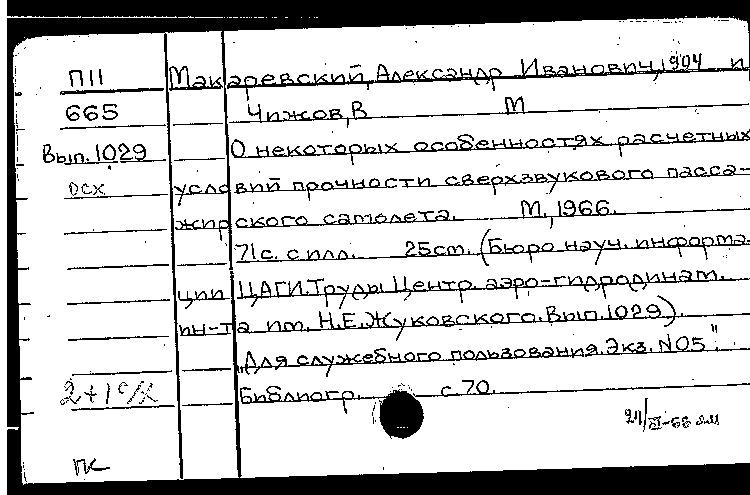 П11 Макаревский, Александр Иванович, 1904 и
665 Чижов, В М
Вып. 1029 О некоторых особенностях расчетных
осх условий прочности сверхзвукового пасса-
жирского самолета. М., 1966.
71с. с илл. 25см. (Бюро науч. информа
ции ЦАГИ. Труды Центр. аэро-гидродинам.
ин-та им. Н.Е. Жуковского. Вып. 1029).
„Для служебного пользования. Экз. N05".
2+1 с/к Библиогр. с. 70.
пк